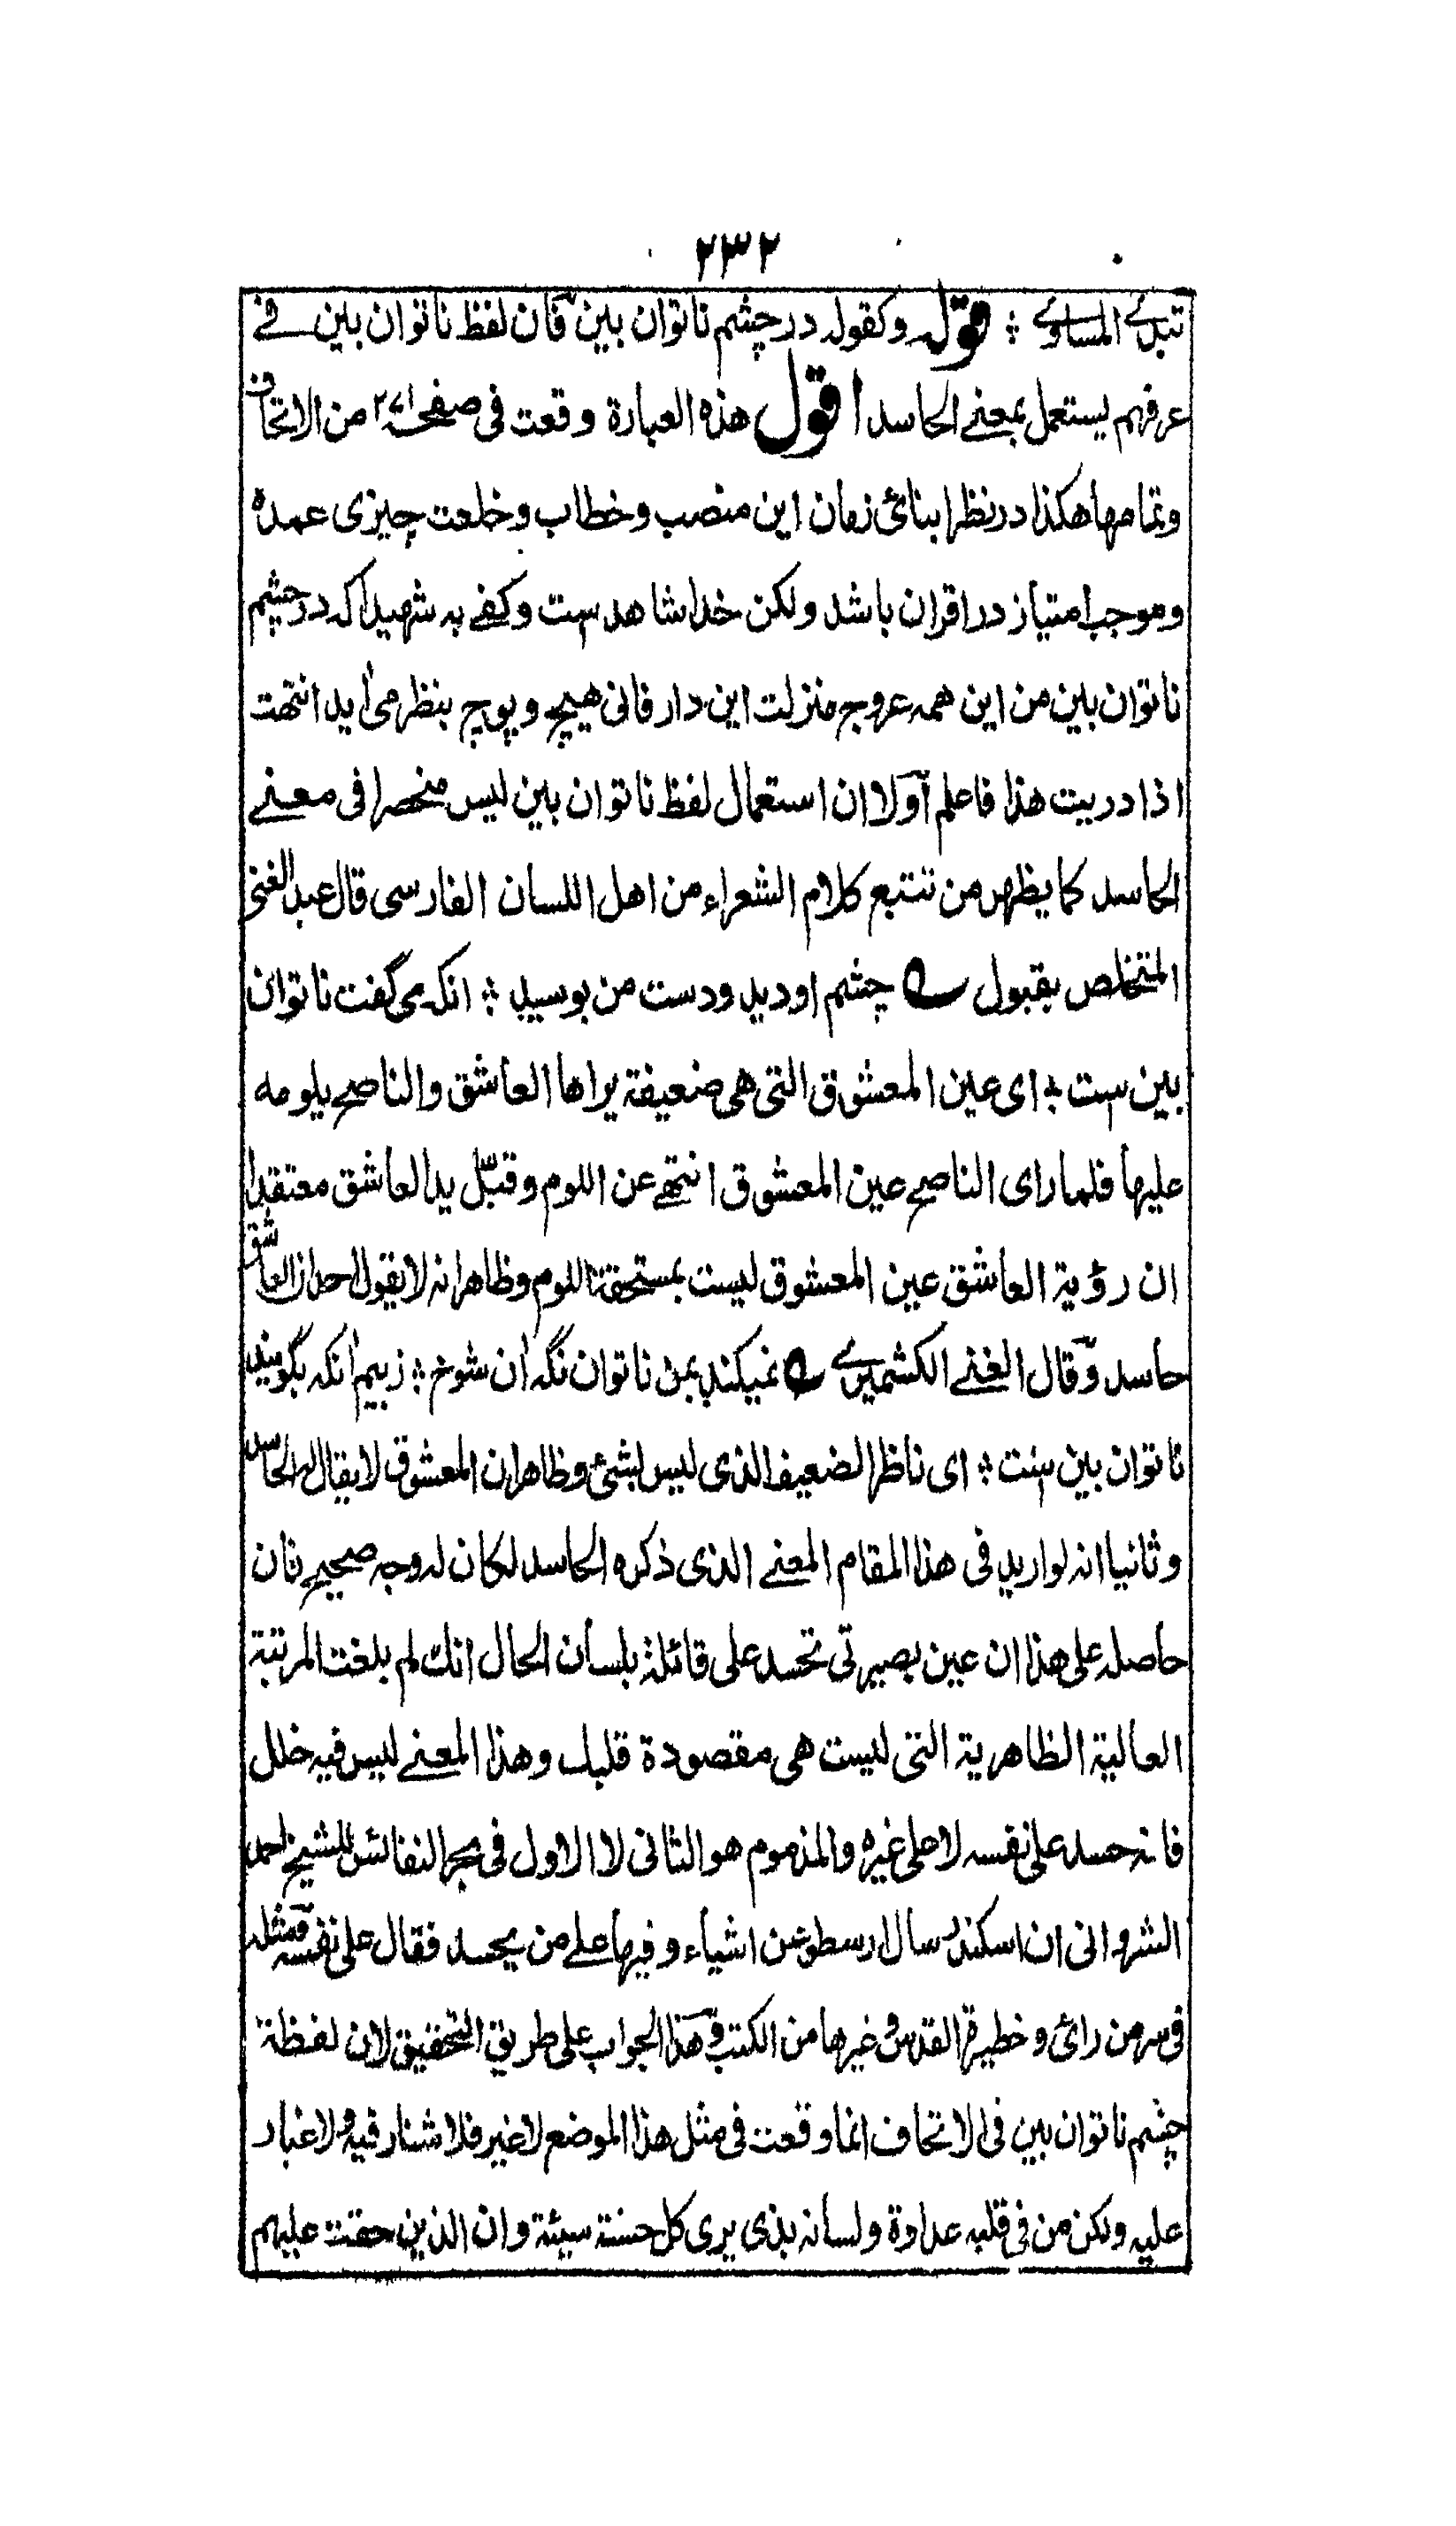 ٢٣٢
تبدے المساوے ؞ قولہ وکقولہ در چشم ناتوان بین فان لفظ ناتوان بین فے
عرفہم یستعمل بمعنے الحاسد اقول ھذہ العبارة وقعت فی صفحہ ٢٧١ من الاتحاف
وتمامہا ھکذا در نظر ابنائ زمان این منصب وخطاب وخلعت چیزی عمدہ
وموجب امتیاز در اقران باشد ولکن خدا شاھد ست وکفے بہ شہیدا کہ در چشم
ناتوان بین من این ھمہ عروج منزلت این دار فانی ھیچ وپوچ بنظر می آید انتہت
اذا دریت ھذا فاعلم اولا ان استعمال لفظ ناتوان بین لیس منحصرا فی معنے
الحاسد کما یظہر من تتبع کلام الشعراء من اھل اللسان الفارسی قال عبد الغنی
المتخلص بقبول ؎ چشم او دید ودست من بوسید ؞ انکہ می گفت ناتوان
بین ست ؞ ای عین المعشوق التی ھی ضعیفة یراھا العاشق والناصح یلومہ
علیہا فلما رای الناصح عین المعشوق انتہے عن اللوم وقبّل ید العاشق معتقدا
ان رؤیة العاشق عین المعشوق لیست بمستحقة اللوم وظاھر انہ لا یقول احد ان العاشق
حاسد وقال الغنے الکشمیرے ؎ نمیکند بمن ناتوان نگہ آن شوخ ؞ ز بیم آنکہ بگویند
ناتوان بین ست ؞ ای ناظر الضعیف الذی لیس بشئ وظاھر ان المعشوق لا یقال لہ الحاسد
وثانیا انہ لو ارید فی ھذا المقام المعنے الذی ذکرہ الحاسد لکان لہ وجہ صحیح فان
حاصلہ علی ھذا ان عین بصیرتی تحسد علی قائلة بلسان الحال انک لم بلغت المرتبة
العالیة الظاھریة التی لیست ھی مقصودة قلبک وھذا المعنے لیس فیہ خلل
فانہ حسد علی نفسہ لا علی غیرہ والمذموم ھو الثانی لا الاول فی بحر النفائس للشیخ احمد
الشروانی ان اسکندر سال ارسطو عن اشیاء وفیہا علے من یحسد فقال علی نفسہ ومثلہ
فی سر من رائ وخطیرة القدس وغیرھا من الکتب وھذا الجواب علی طریق التحقیق لان لفظة
چشم ناتوان بین فی الاتحاف انما وقعت فی مثل ھذا الموضع لا غیر فلا شنار فیہ ولا غبار
علیہ ولکن من فی قلبہ عداوة ولسانہ بذی یری کل حسنة سیئة وان الذین حقت علیہم